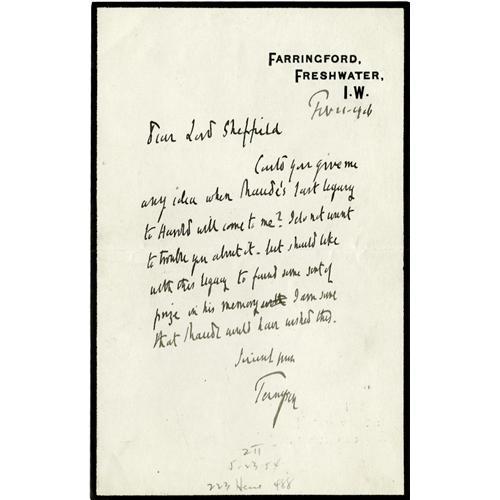 FARRINGFORD,
FRESHWATER,
I.W.
Dear Lord Sheffield
Could you give me
any idea when Maude's last legacy
to Harold will come to me? I do not want
to trouble you about it - but should like
with this legacy to found some sort of
prize in his memory I am sure
that Maude would have wished this.
Tennyson
211
5-23-54
223 488